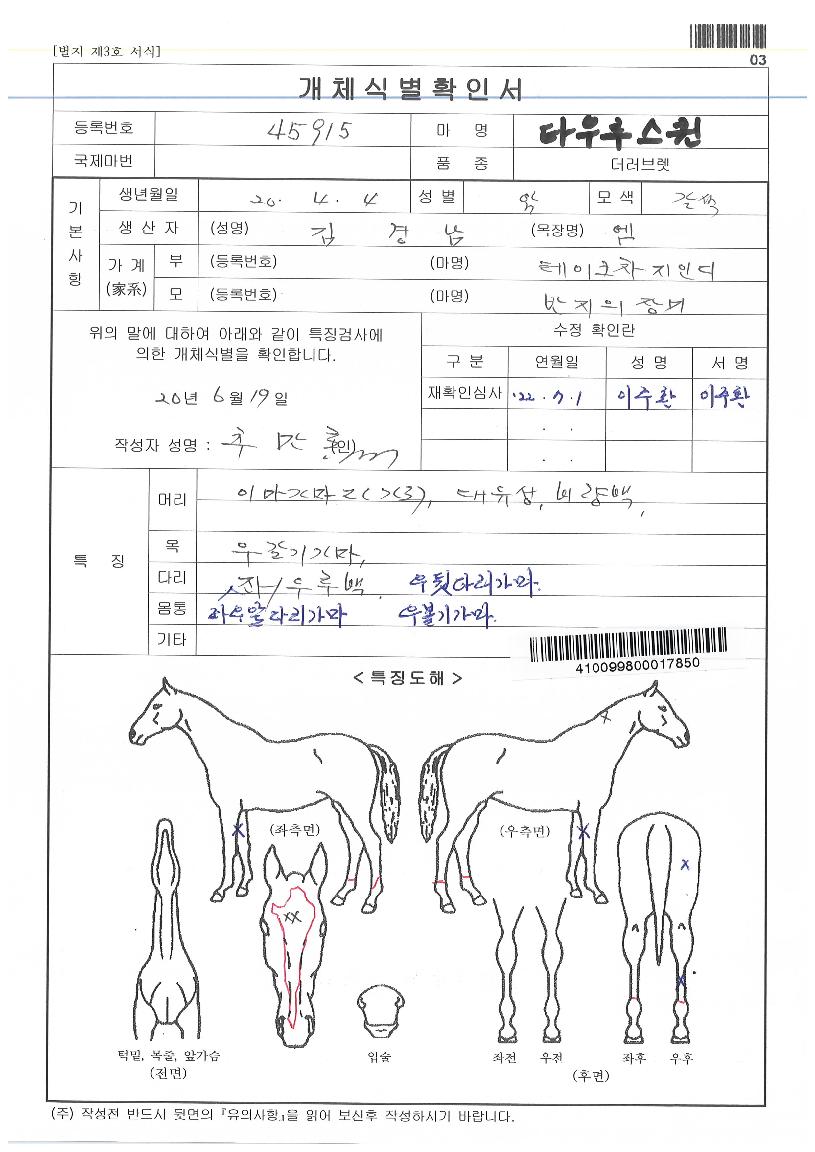 [별지 제3호 서식]
03
개체식별확인서
등록번호 45915 마 명 다우루스퀸
국제마번 품 종 더러브렛
기본사항
생년월일 20. 4. 4 성 별 암 모 색 갈색
생 산 자 (성명) 김 경 남 (목장명) 엠
가 계 (家系)
부 (등록번호) (마명) 테이크차지인디
모 (등록번호) (마명) 반지의장미
위의 말에 대하여 아래와 같이 특징검사에
의한 개체식별을 확인합니다.
20년 6월 19일
작성자 성명 : 추 만 (인)
수정 확인란
구 분 연월일 성 명 서 명
재확인심사 '22. 7. 1 이주환 이주환
. .
. .
특 징
머리 이마가마2(가로), 대유성, 비량백,
목 우갈기가마,
다리 좌/우후백. 우뒷다리가마.
몸통 좌우앞다리가마 우볼기가마.
기타
410099800017850
< 특징도해 >
(좌측면) (우측면)
턱밑, 목줄, 앞가슴
(전면)
입술
좌전 우전 좌후 우후
(후면)
(주) 작성전 반드시 뒷면의 『유의사항』을 읽어 보신후 작성하시기 바랍니다.